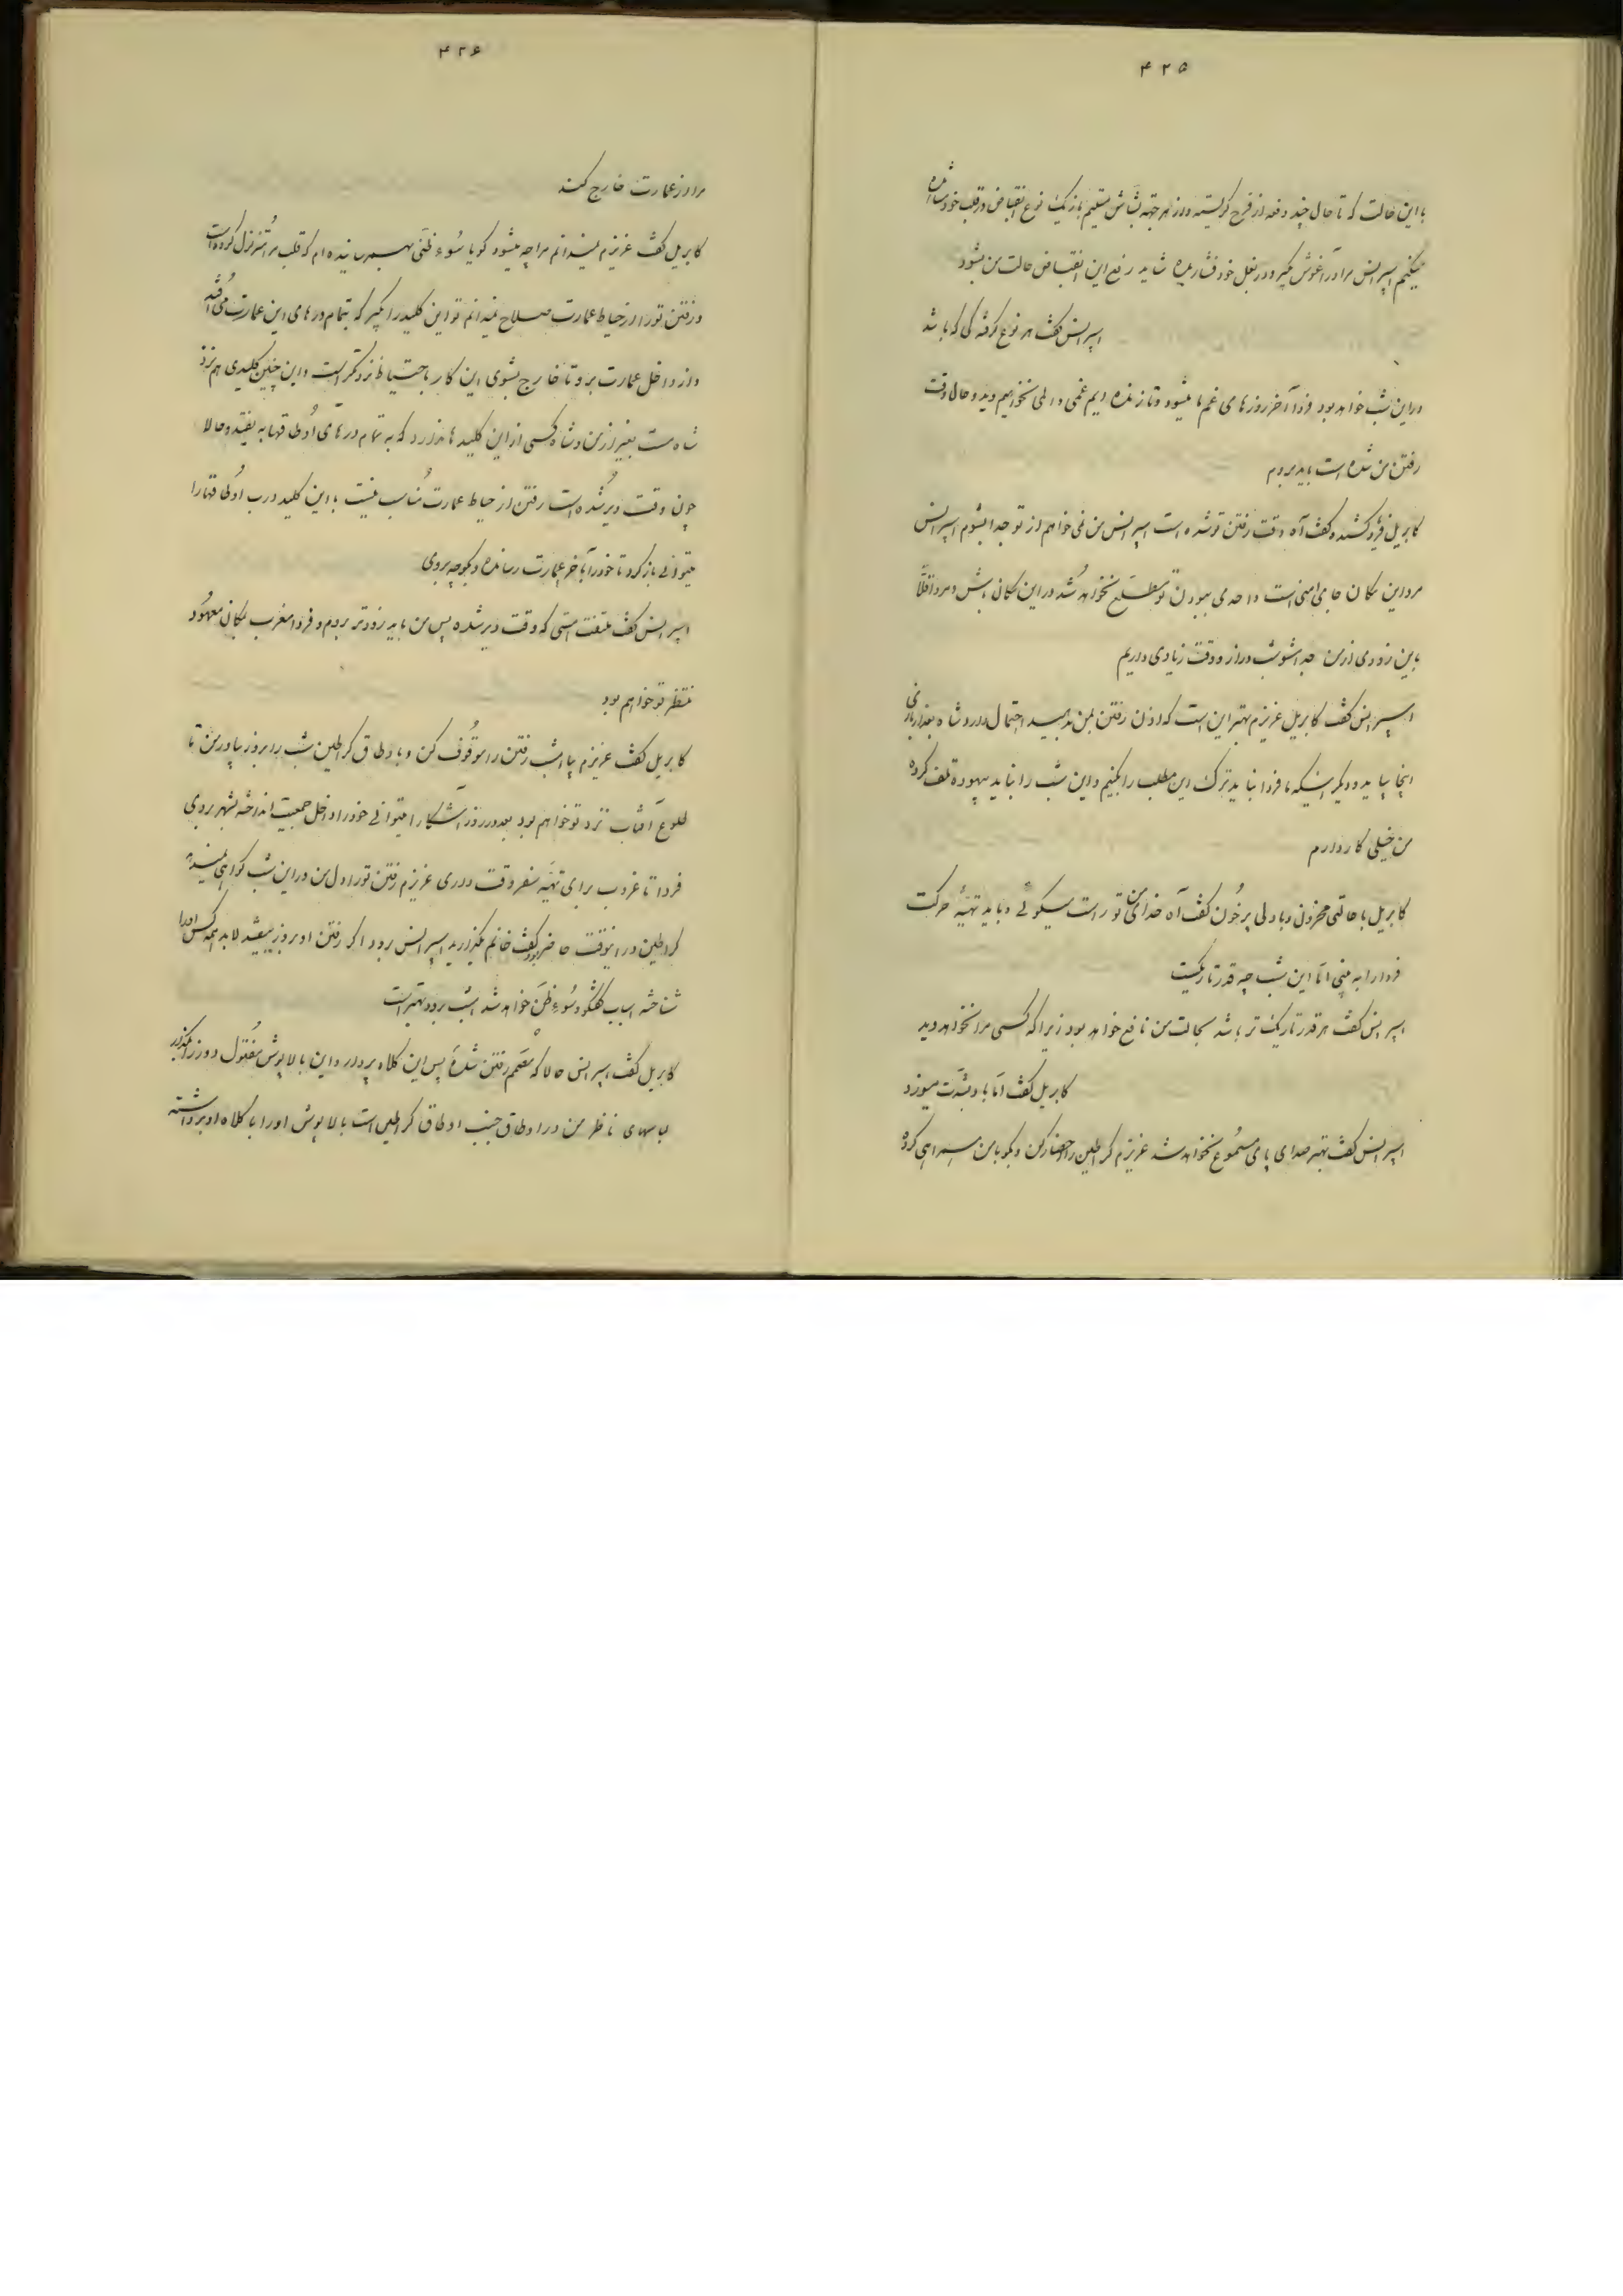 ۴۲۵
با این حالت که تا حال چند دفعه از فرح گریسته و از هر جهته بشاش هستیم باز یک نوع انقباض در قلب خود مشاهده
میکنم اسپرانس مرا در آغوش بگیر و در بغل خود فشار بده شاید رفع این انقباض حالت من بشود
اسپرانس گفت هر نوع گرفتگی که باشد
در این شب خواهد بود فردا آخر روزهای غم ما میشود و تا زنده ایم غمی و المی نخواهیم دید و حال وقت
رفتن من شده است باید بروم
کابریل فریاد کشیده گفت آه وقت رفتن تو شده است اسپرانس من نمی خواهم از تو جدا بشوم اسپرانس
مرو این مکان جای امنی است و احدی ببودن تو مطلع نخواهد شد در این مکان باش و مرو اقلاً
باین زودی از من جدا مشو شب دراز و وقت زیادی داریم
اسپرانس گفت کابریل عزیزم بهتر این است که اذن رفتن بمن بدهید احتمال دارد شاه بعد از بازی
اینجا بیاید و دیگر اینکه ما فردا نباید ترک این مطلب را بکنیم و این شب را نباید بیهوده تلف کرده
من خیلی کار دارم
کابریل با حالتی محزون و با دلی پر خون گفت آه خدای من تو راست میگوئی و باید تهیهٔ حرکت
فردا را به بینی اما این شب چه قدر تاریکست
اسپرانس گفت هر قدر تاریک تر باشد بحالت من نافع خواهد بود زیرا که کسی مرا نخواهد دید
کابریل گفت اما باد بشدت میوزد
اسپرانس گفت بهتر صدای پای مسموع نخواهد شد عزیزم کراطین را احضار کن و بگو با من همراهی کرده
۴۲۶
مرا از عمارت خارج کند
کابریل گفت عزیزم نمیدانم مرا چه میشود گویا سوء ظنی بهم رسانیده ام که قلب مرا متزلزل کرده است
و رفتن تو را از حیاط عمارت صلاح نمیدانم تو این کلید را بگیر که بتمام درهای این عمارت می افتد
و از داخل عمارت برو تا خارج بشوی این کار با احتیاط نزدیکتر است و این چنین کلیدی هم نزد
شاه هست بغیر از من و شاه کسی از این کلیدها ندارد که به تمام درهای اوطاقها به بیفتد و حالا
چون وقت دیر شده است رفتن از حیاط عمارت مناسب نیست با این کلید درب اوطاقها را
میتوانی باز کرد تا خود را بآخر عمارت رسانده و بکوچه بروی
اسپرانس گفت ملتفت هستی که وقت دیر شده پس من باید زودتر بروم و فردا مغرب بمکان معهود
منتظر تو خواهم بود
کابریل گفت عزیزم بیا امشب رفتن را موقوف کن و با وطاق کراطین شب را بروز بیاور من تا
طلوع آفتاب نزد تو خواهم بود بعد در روز آشکارا میتوانی خود را داخل جمعیت انداخته بشهر بروی
فردا تا غروب برای تهیه سفر وقت داری عزیزم رفتن تو را دل من در این شب گواهی نمیدهد
کراطین در اینوقت حاضر بود گفت خانم بگذارید اسپرانس برود اگر رفتن او بروز بیفتد لابد همه کس او را
شناخته اسباب گفتگو و سوء ظن خواهد شد امشب برود بهتر است
کابریل گفت اسپرانس حالا که مصمم رفتن شدهٔ پس این کلاه پردار و این بالاپوش مفتول دوز را بگذار
لباسهای ناظر من در اوطاق جنب اوطاق کراطین است بالاپوش او را با کلاه او برداشته